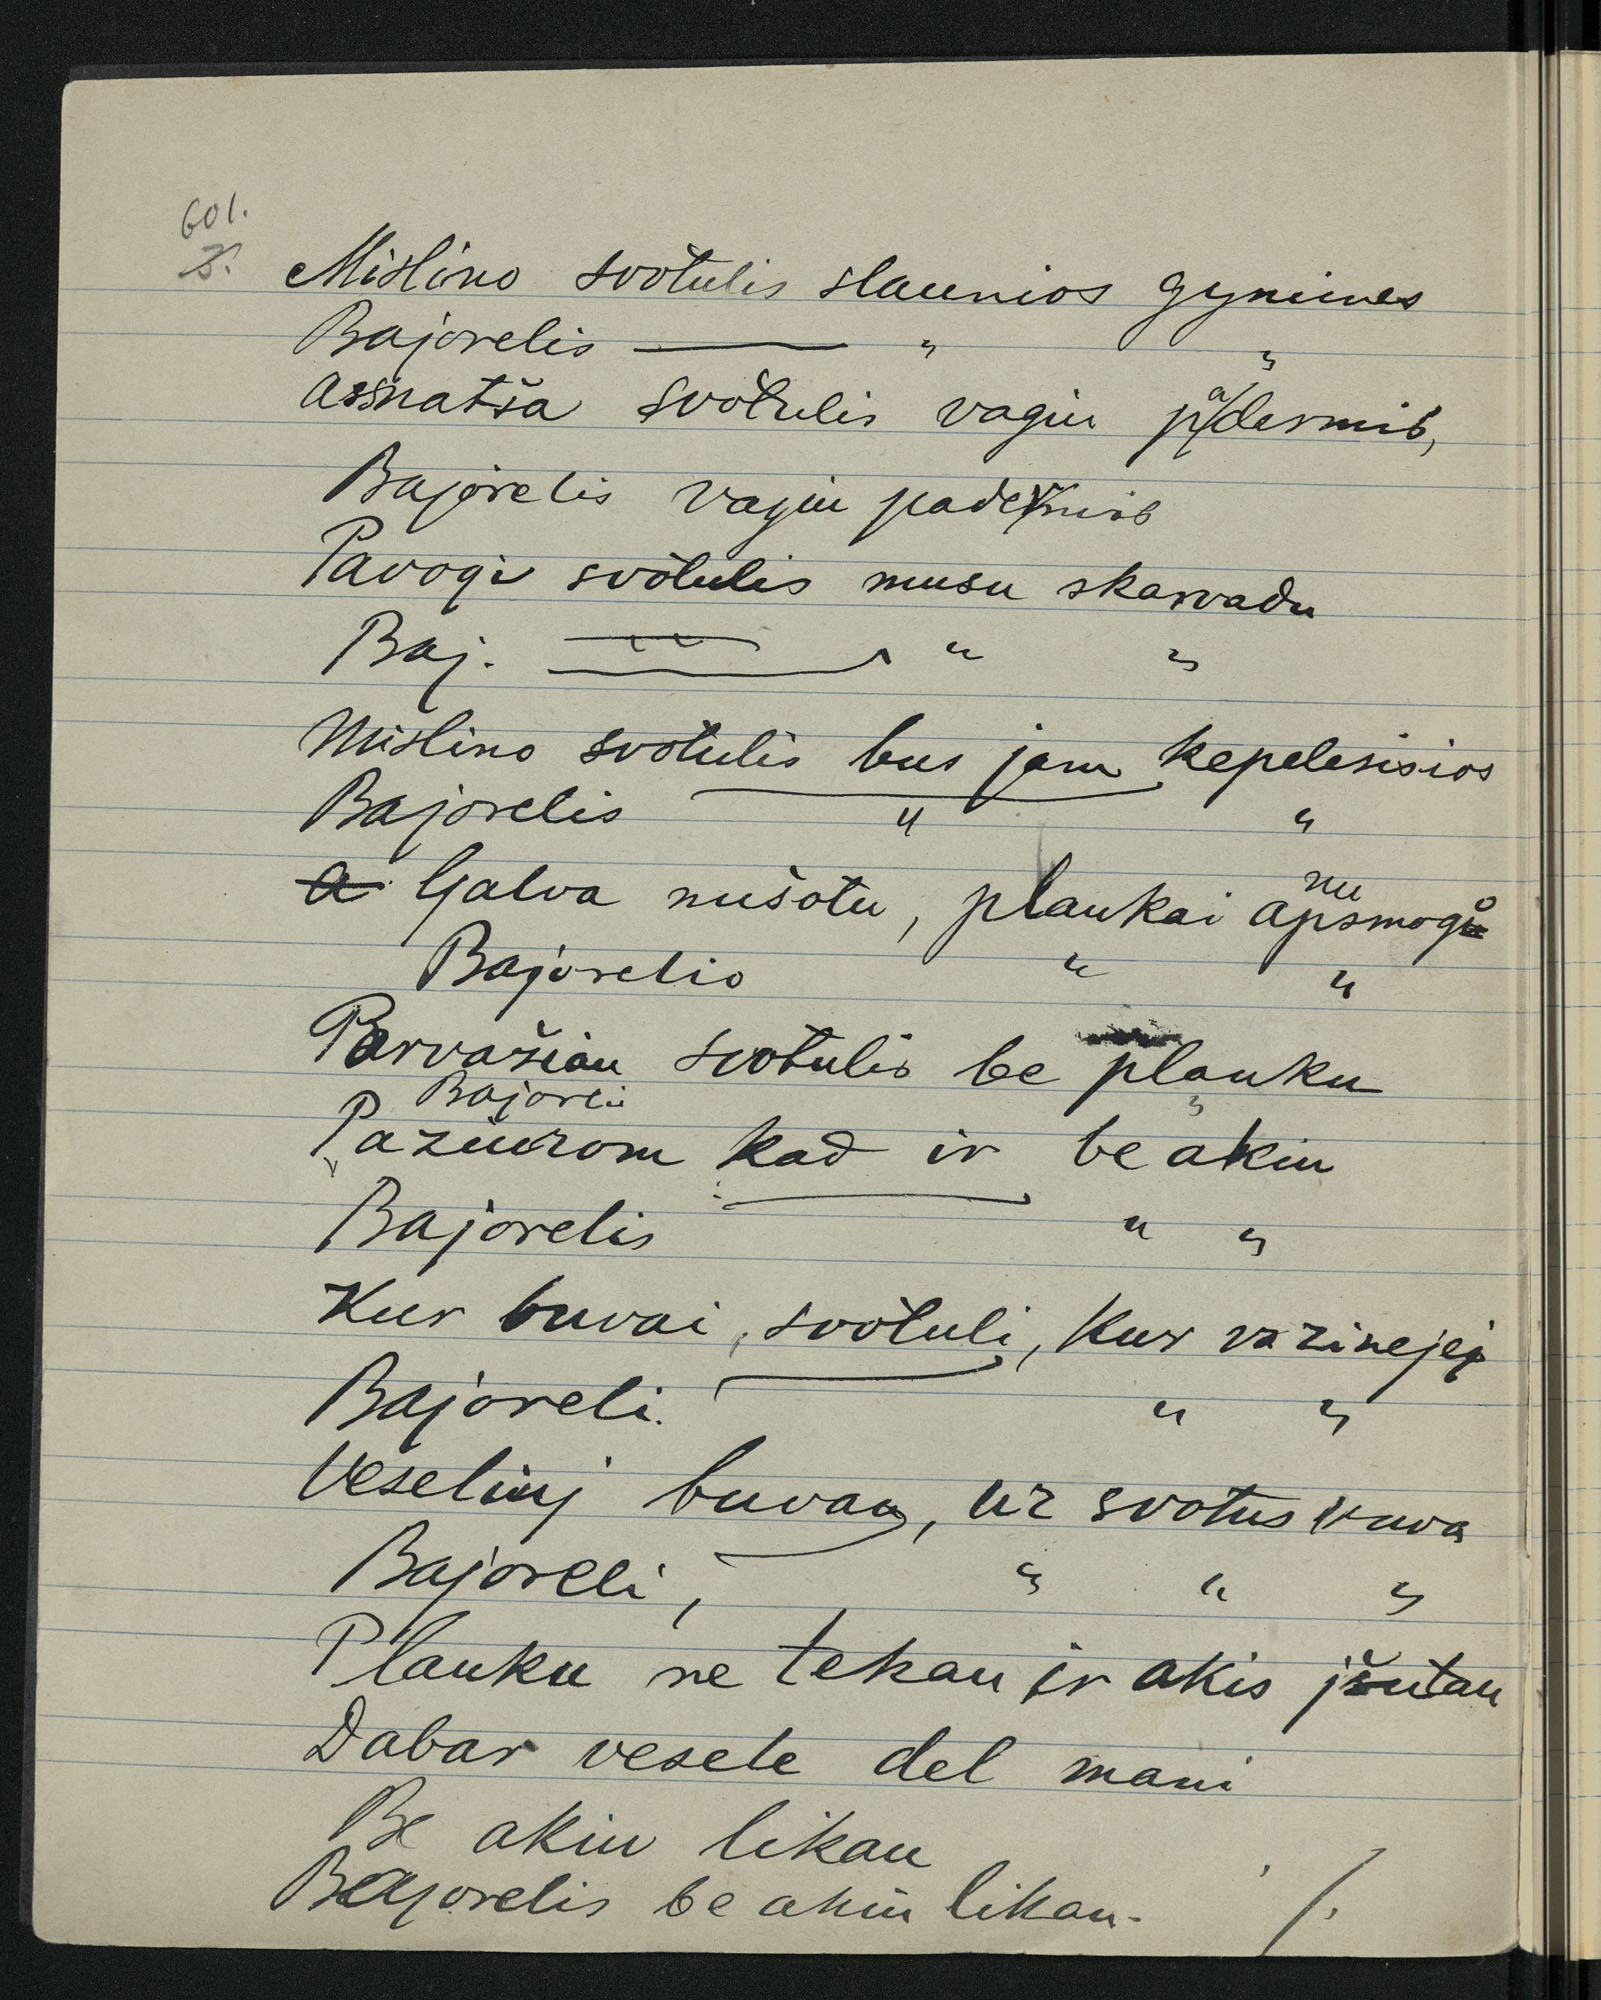 601.
3.
Mislino svotulis slaunios gymines
Bajorelis —— " "
assnatša svotulis vagiu padermis,
Bajorelis vagiu padermis
Pavogi svotulis musu skarvadu
Baj. —— " "
Mislino svotulis bus jam kepelesisios
Bajorelis —— " "
Galva nušotu, plaukai nu
Bajorelio " "
Parvažiau svotulis be plauku
Bajoreli "
Paziurom kad ir be akiu
Bajorelis —— " "
Kur buvai, svotuli, kur vazinejei
Bajoreli. —— " "
Veseliuj buvau, uz svotus
Bajoreli, — " " "
Plauku ne tekau ir akis jšutau
Dabar vesele del mani
Be akiu likau
Bajorelis be akiu likau. /.